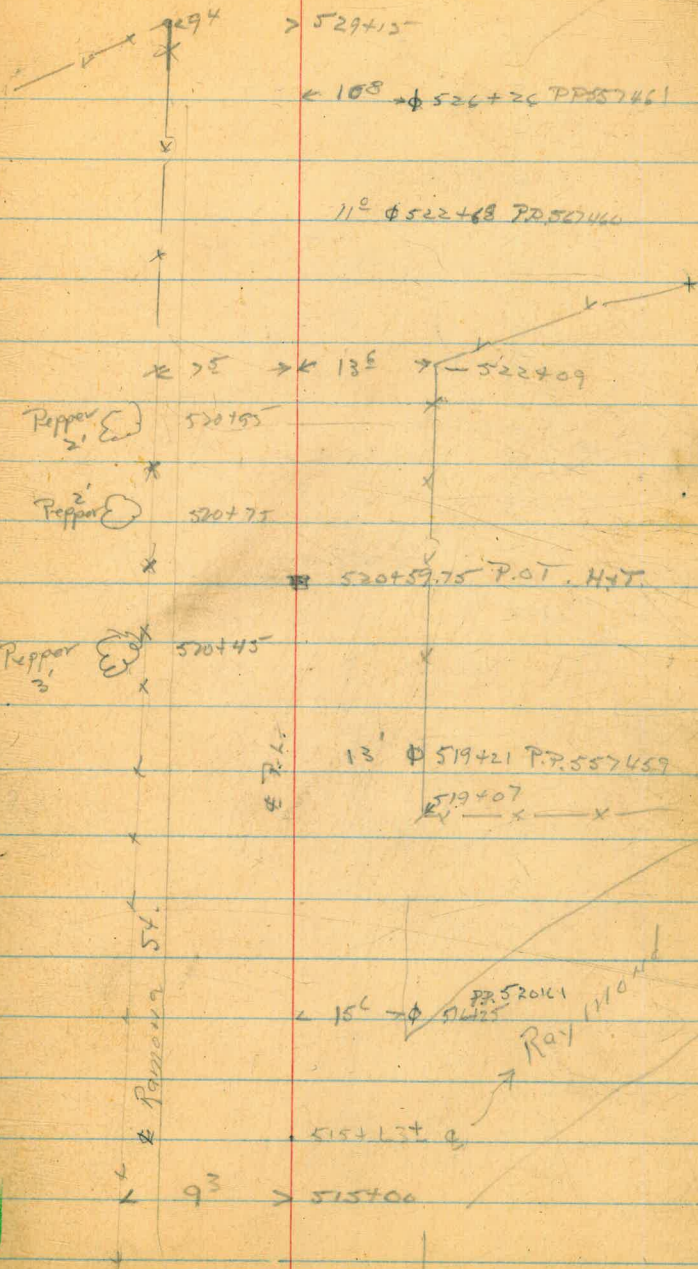 94 > 529+15
← 10⁸ → ϕ 526+26 P.P.557461
11⁰ ϕ 522+68 P.P.567460
7⁵ 13⁶ 522+09
Pepper 2' 520+95
Pepper 2' 520+75
520+59.75 P.O.T. H&T.
Pepper 3' 520+45
13' ϕ 519+21 P.P.557459
519+07
℄ P.L.
P.P.520161
15⁶ → ϕ 516+25
Raymond
℄ Ramona St.
515+63± ℄
9³ > 515+00